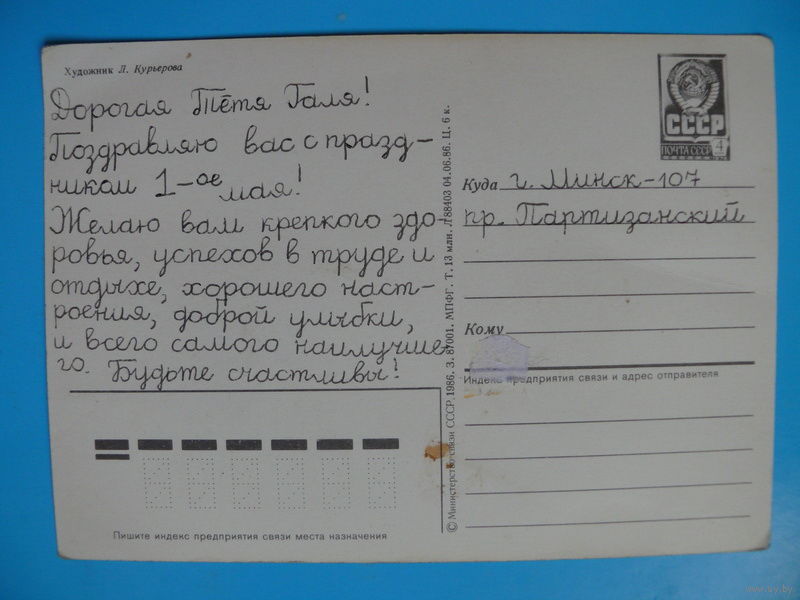 Художник Л. Курьерова
Дорогая Тётя Галя!
Поздравляю вас с празд-
ником 1-ое мая!
Желаю вам крепкого здо-
ровья, успехов в труде и
отдыхе, хорошего наст-
роения, доброй улыбки,
и всего самого наилучше-
го. Будьте счастливы!
Пишите индекс предприятия связи места назначения
© Министерство связи СССР. 1986. З. 87001. МПФГ. Т. 13 млн. Л88403 04.06.86. Ц. 6 к.
СССР
ПОЧТА СССР 4
Куда г. Минск-107
пр. Партизанский
Кому
Индекс предприятия связи и адрес отправителя
www.ay.by